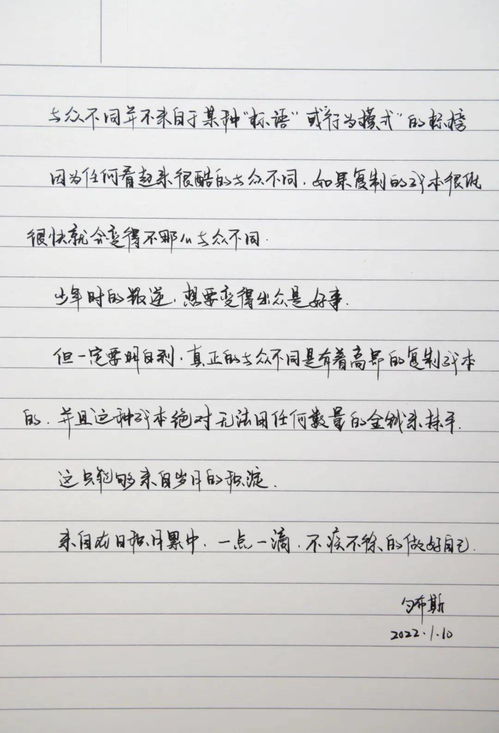 与众不同并不来自于某种“标语”或“行为模式”的标榜
因为任何看起来很酷的与众不同，如果复制的成本很低
很快就会变得不那么与众不同.
少年时的叛逆，想要变得出众是好事.
但一定要明白到，真正的与众不同是有着高昂的复制成本
的，并且这种成本绝对无法用任何数量的金钱来抹平.
这只能够来自岁月的积淀.
来自在日积月累中，一点一滴，不疾不徐的做好自己.
布斯
2022.1.10